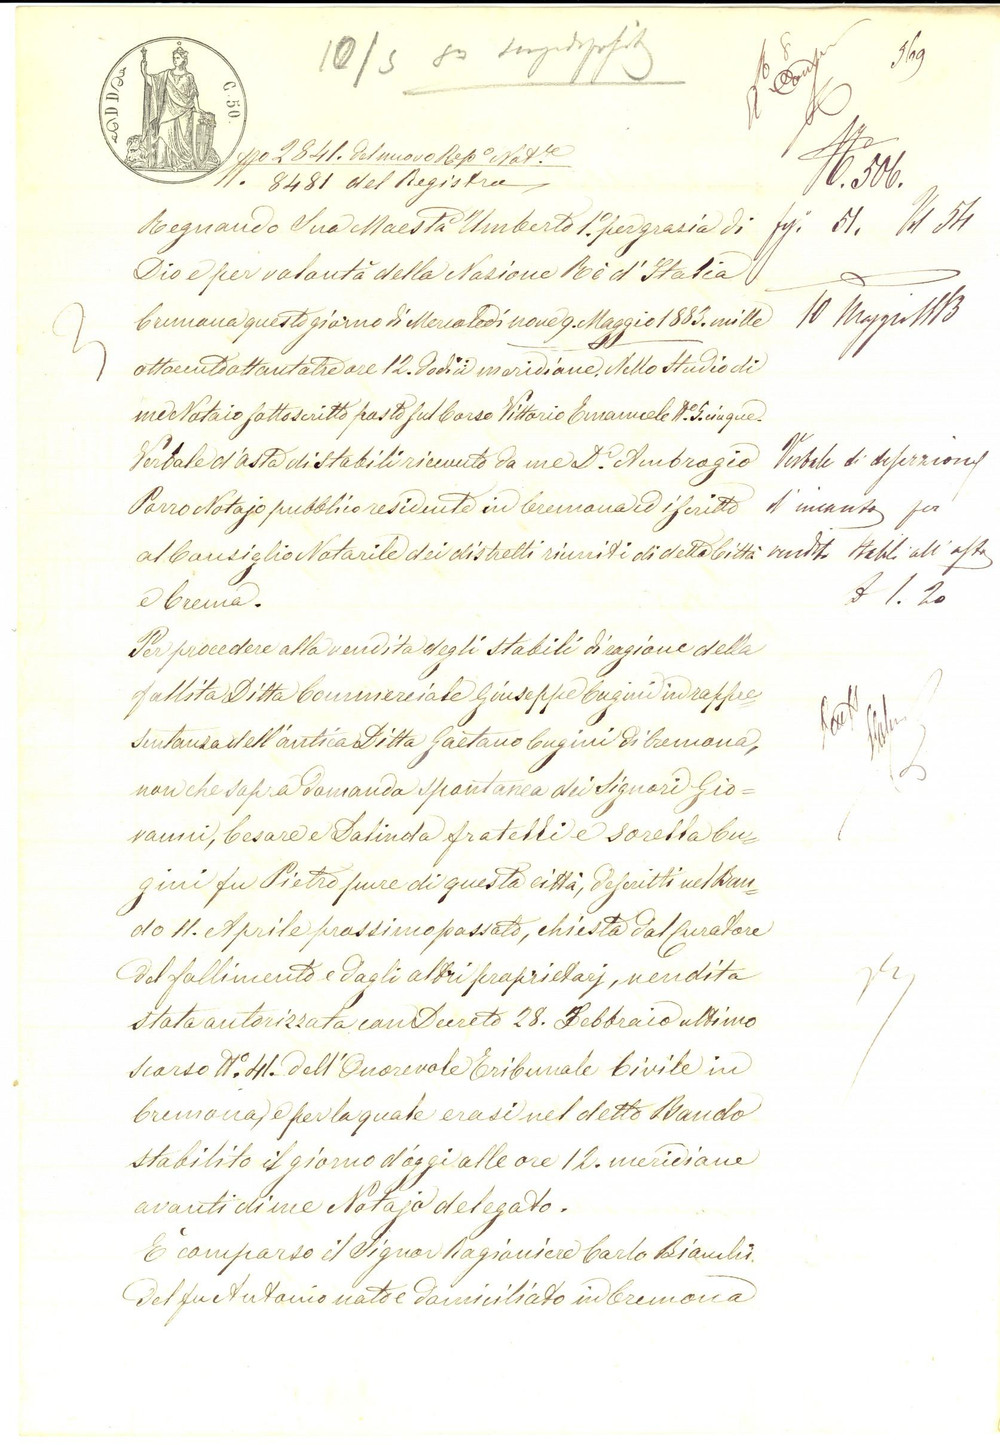 10/5
569
C. 50.
N.º 2841. del nuovo Rep.º Not.le
N. 8481 del Registro
N. 506.
Regnando Sua Maestà Umberto 1.º per grazia di
Dio e per volontà della Nazione Rè d'Italia
Cremona questo giorno di Mercoledì nove 9. Maggio 1883. mille
ottocentottantatre ore 12. dodici meridiane. Nello Studio di
me Notaio sottoscritto posto sul Corso Vittorio Emanuele N.º 5. cinque.
Verbale d'asta di stabili ricevuto da me D.r Ambrogio
Porro Notajo pubblico residente in Cremona ed iscritto
al Consiglio Notarile dei distretti riuniti di detta Città
e Crema.
Per procedere alla vendita degli stabili di ragione della
fallita Ditta Commerciale Giuseppe Cugini in rappre=
sentanza dell'antica Ditta Gaetano Cugini di Cremona,
non che sopra domanda spontanea dei Signori Gio=
vanni, Cesare e Dalinda fratelli e sorella Cu=
gini fu Pietro pure di questa città, descritti nel Ban=
do 11. Aprile prossimo passato, chiesta dal Curatore
del fallimento e dagli altri proprietarj, vendita
stata autorizzata con Decreto 28. Febbraio ultimo
scorso N.º 41. dell'Onorevole Tribunale Civile in
Cremona, e per la quale erasi nel detto Bando
stabilito il giorno d'oggi alle ore 12. meridiane
avanti di me Notajo delegato.
È comparso il Signor Ragioniere Carlo Bianchi
del fu Antonio nato e domiciliato in Cremona
51. Vol 54
10 Maggio 1883
Verbale di diserzione
d'incanto per
vendita stabili all'asta
£ 1. 20